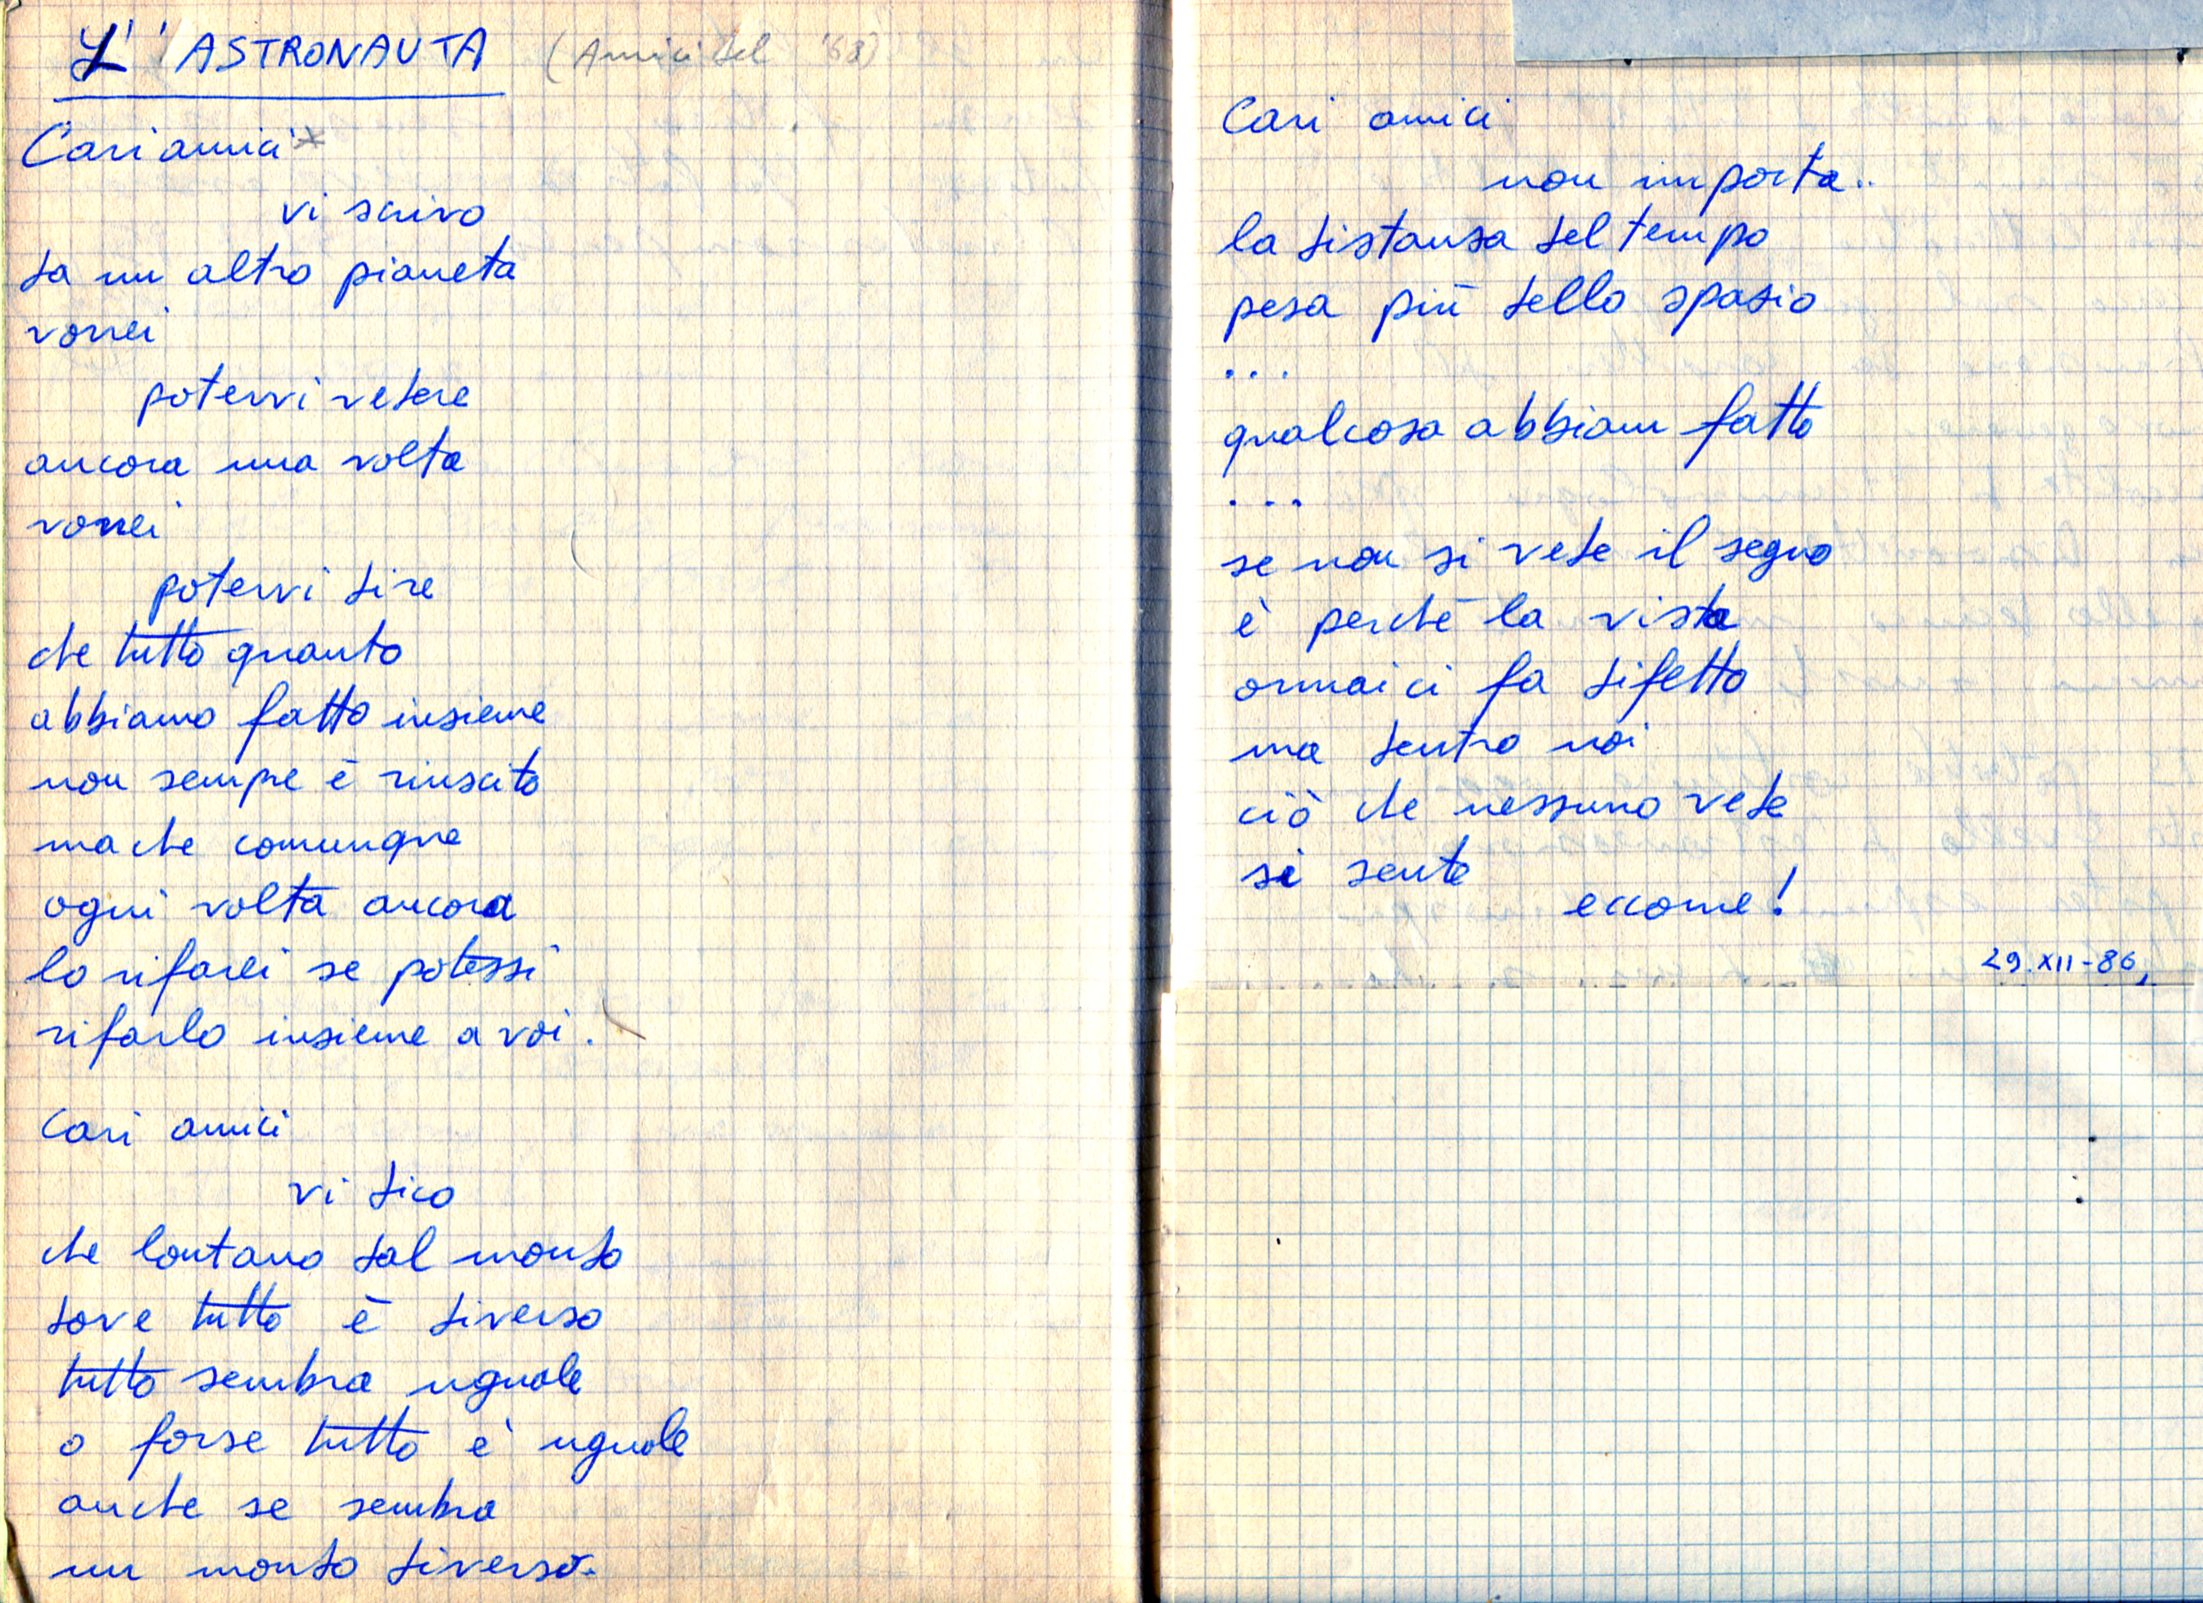 L'ASTRONAUTA (Amici del '68)
Cari amici*
vi scrivo
da un altro pianeta
vorrei
potervi vedere
ancora una volta
vorrei
potervi dire
che tutto quanto
abbiamo fatto insieme
non sempre è riuscito
ma che comunque
ogni volta ancora
lo rifarei se potessi
rifarlo insieme a voi.
Cari amici
vi dico
che lontano dal mondo
dove tutto è diverso
tutto sembra uguale
o forse tutto è uguale
anche se sembra
un mondo diverso.
Cari amici
non importa..
la distanza del tempo
pesa più dello spazio
...
qualcosa abbiam fatto
...
se non si vede il segno
è perché la vista
ormai ci fa difetto
ma dentro noi
ciò che nessuno vede
si sente
eccome!
29.XII-86,